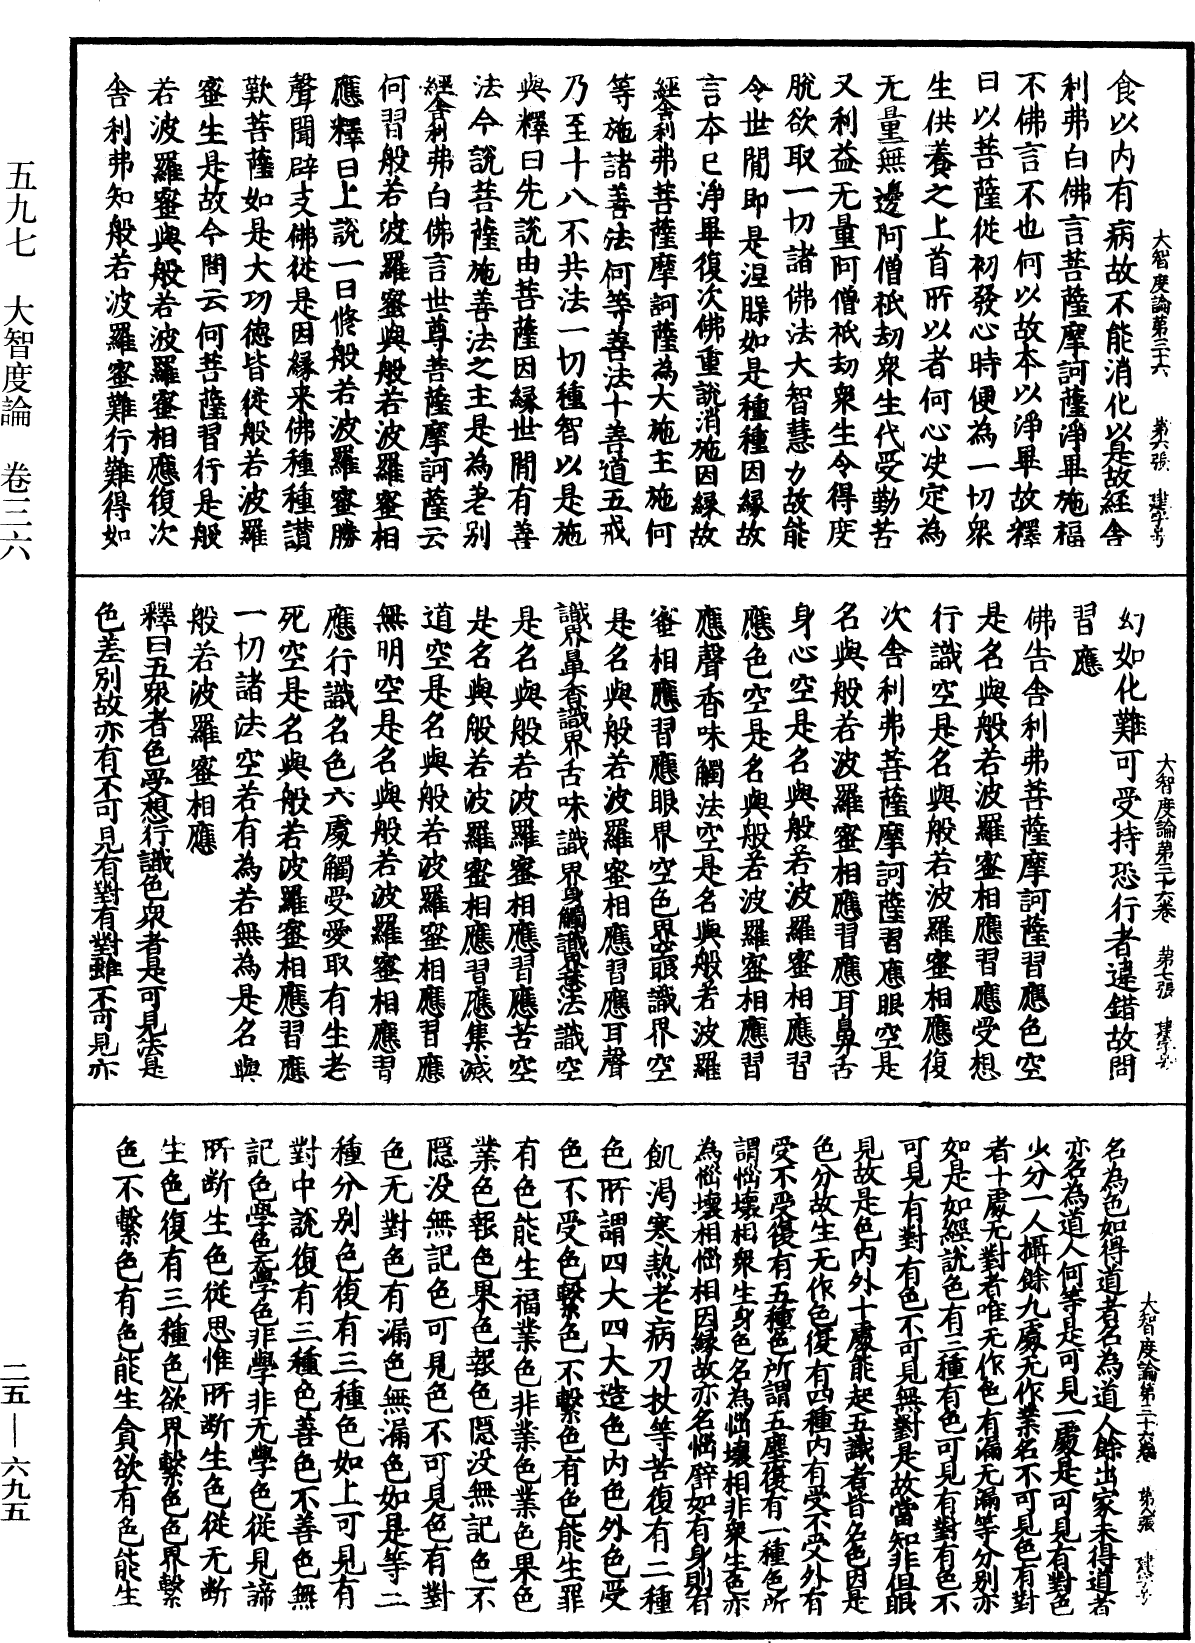 食以內有病故不能消化以是故經舍
利弗白佛言菩薩摩訶薩淨畢施福
不佛言不也何以故本以淨畢故釋
曰以菩薩從初發心時便為一切眾
生供養之上首所以者何心決定為
无量無邊阿僧祇劫眾生代受勤苦
又利益无量阿僧祇劫眾生令得度
脫欲取一切諸佛法大智慧力故能
令世間即是涅槃如是種種因緣故
言本已淨畢復次佛重說消施因緣故
經舍利弗菩薩摩訶薩為大施主施何
等施諸善法何等善法十善道五戒
乃至十八不共法一切種智以是施
與釋曰先說由菩薩因緣世間有善
法今說菩薩施善法之主是為差別
經舍利弗白佛言世尊菩薩摩訶薩云
何習般若波羅蜜與般若波羅蜜相
應釋曰上說一日修般若波羅蜜勝
聲聞辟支佛從是因緣來佛種種讚
歎菩薩如是大功德皆從般若波羅
蜜生是故今問云何菩薩習行是般
若波羅蜜與般若波羅蜜相應復次
舍利弗知般若波羅蜜難行難得如
大智度論第三十六　第六張　建字号
幻如化難可受持恐行者違錯故問
習應
佛告舍利弗菩薩摩訶薩習應色空
是名與般若波羅蜜相應習應受想
行識空是名與般若波羅蜜相應復
次舍利弗菩薩摩訶薩習應眼空是
名與般若波羅蜜相應習應耳鼻舌
身心空是名與般若波羅蜜相應習
應色空是名與般若波羅蜜相應習
應聲香味觸法空是名與般若波羅
蜜相應習應眼界空色界空眼識界空
是名與般若波羅蜜相應習應耳聲
識界鼻香識界舌味識界身觸識界意法識空
是名與般若波羅蜜相應習應苦空
是名與般若波羅蜜相應習應集滅
道空是名與般若波羅蜜相應習應
無明空是名與般若波羅蜜相應習
應行識名色六處觸受愛取有生老
死空是名與般若波羅蜜相應習應
一切諸法空若有為若無為是名與
般若波羅蜜相應
釋曰五眾者色受想行識色眾者是可見法是
色差別故亦有不可見有對有對雖不可見亦
大智度論第三十六卷　第七張　建字号
名為色如得道者名為道人餘出家未得道者
亦名為道人何等是可見一處是可見有對色
少分一人攝餘九處无作業名不可見色有對
者十處无對者唯无作色有漏无漏等分別亦
如是如經說色有三種有色可見有對有色不
可見有對有色不可見無對是故當知非但眼
見故是色內外十處能起五識者皆名色因是
色分故生无作色復有四種內有受不受外有
受不受復有五種色所謂五塵復有一種色所
謂惱壞相眾生身色名為惱壞相非眾生色亦
為惱壞相惱相因緣故亦名惱譬如有身則有
飢渴寒熱老病刀杖等苦復有二種
色所謂四大四大造色內色外色受
色不受色繫色不繫色有色能生罪
有色能生福業色非業色業色果色
業色報色果色報色隱沒無記色不
隱沒無記色可見色不可見色有對
色无對色有漏色無漏色如是等二
種分別色復有三種色如上可見有
對中說復有三種色善色不善色無
記色學色无學色非學非无學色從見諦
所斷生色從思惟所斷生色從无斷
生色復有三種色欲界繫色色界繫
色不繫色有色能生貪欲有色能生
大智度論第三十六卷　第八張　建字号
五九七　大智度論　卷三六
二五—六九五